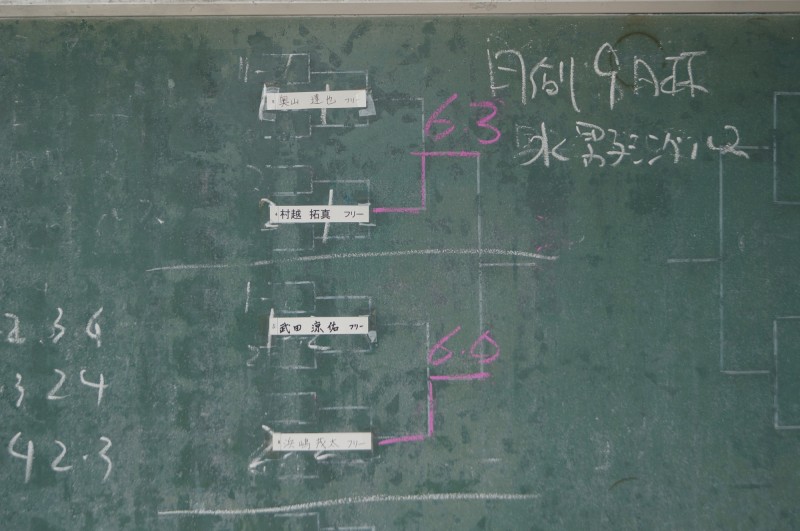 月例9月杯
水男子シングル2
奥山 達也 フリー
6.3
村越 拓真 フリー
武田 涼佑 フリー
6.0
浜嶋 茂太 フリー
2.3 6
3 2 4
4 2.3